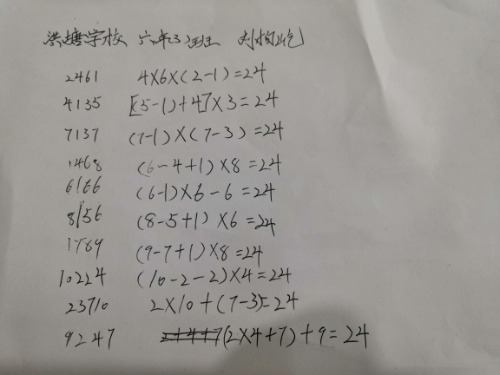 洪塘学校 六年3班
2461 4×6×(2-1)=24
4135 [(5-1)+4]×3=24
7137 (7-1)×(7-3)=24
1468 (6-4+1)×8=24
6166 (6-1)×6-6=24
8156 (8-5+1)×6=24
1789 (9-7+1)×8=24
10224 (10-2-2)×4=24
23710 2×10+(7-3)=24
9247 (2×4+7)+9=24